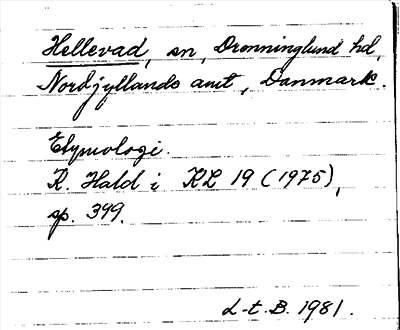 Hellevad, sn, Dronninglund hd,
Nordjyllands amt, Danmark.
Etymologi.
K. Hald i KL 19 (1975),
sp. 399.
L-t. B. 1981.